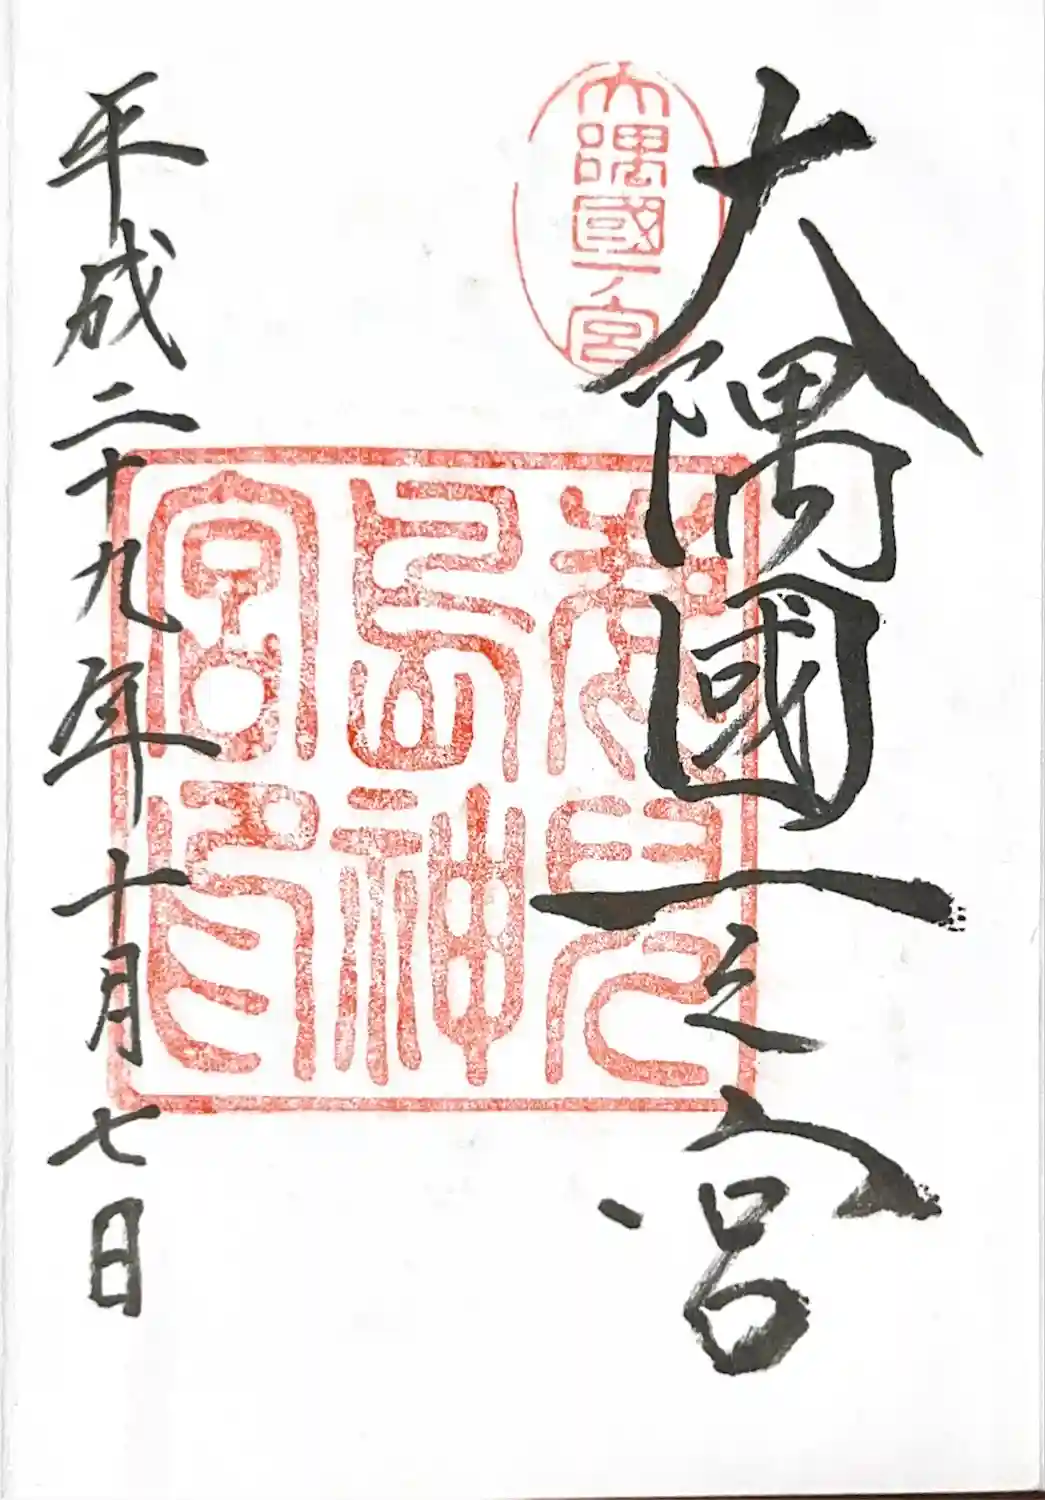 大隅國一之宮
大隅國一ノ宮
鹿兒
島神
宮印
平成二十九年十月七日